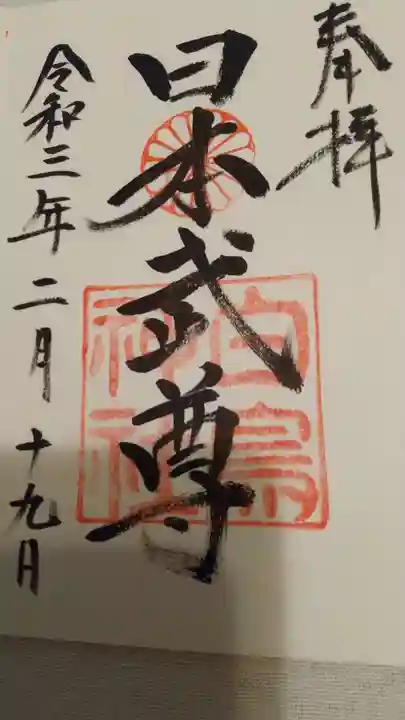 奉拝
日本武尊
白鳥
神社
令和三年二月十九月